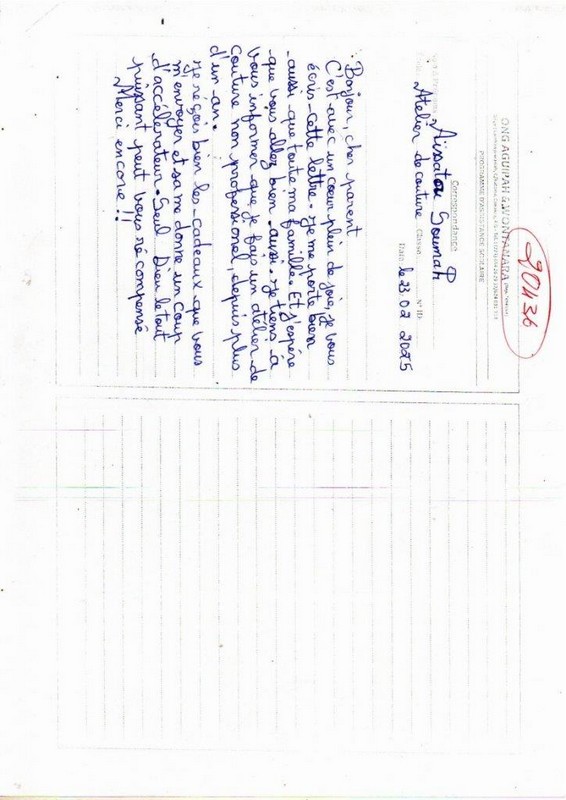 20436
ONG AGUIPAH & WONTANARA
PROGRAMME D'ASSISTANCE SCOLAIRE
Correspondance
Aissatou Soumah
N° ID
Atelier de couture
Classe
Date: le 23.02 2025
Bonjour, cher parent
C'est avec un cœur plein de joie, je vous
écris cette lettre. Je me porte bien
aussi que toute ma famille. Et j'espère
que vous allez bien aussi. Je tiens à
vous informer que je fais un atelier de
couture non professionnel, depuis plus
d'un an.
Je reçois bien les cadeaux que vous
m'envoyer et sa me donne un coup
d'accélérateur. Seul Dieu le tout
puissant peut vous récompensé
Merci encore !!